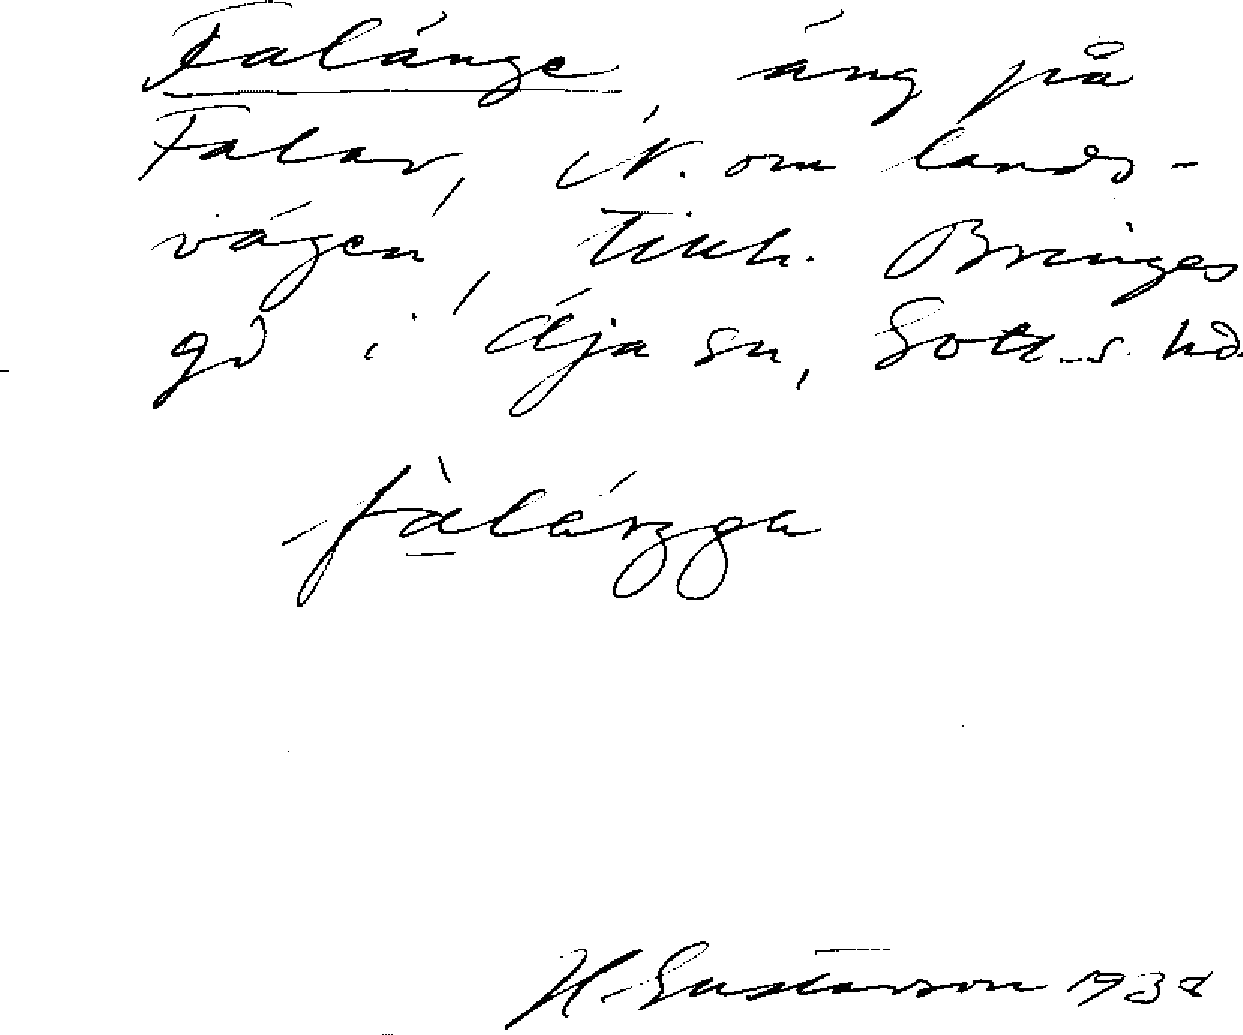 Falänge, äng på
Falar, N. om lands-
vägen, tillh. Bringes
gd i Öja sn, Gotl.s hd.
fàlánga
H. Gustavson 1938